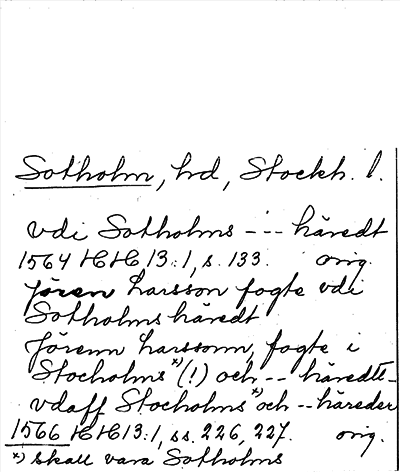 Sotholm, hd, Stockh. l.
vdi Sotholms --- häredt
1564 HH 13:1, s. 133. orig.
Jören Larsson fogte vdi
Sotholms häredt
Jörenn Larssonn, fogte i
Stocholms *)(!) och -- häredtt-
vdaff Stocholms *) och -- häreder
1566 HH 13:1, ss. 226, 227. orig.
*) skall vara Sotholms